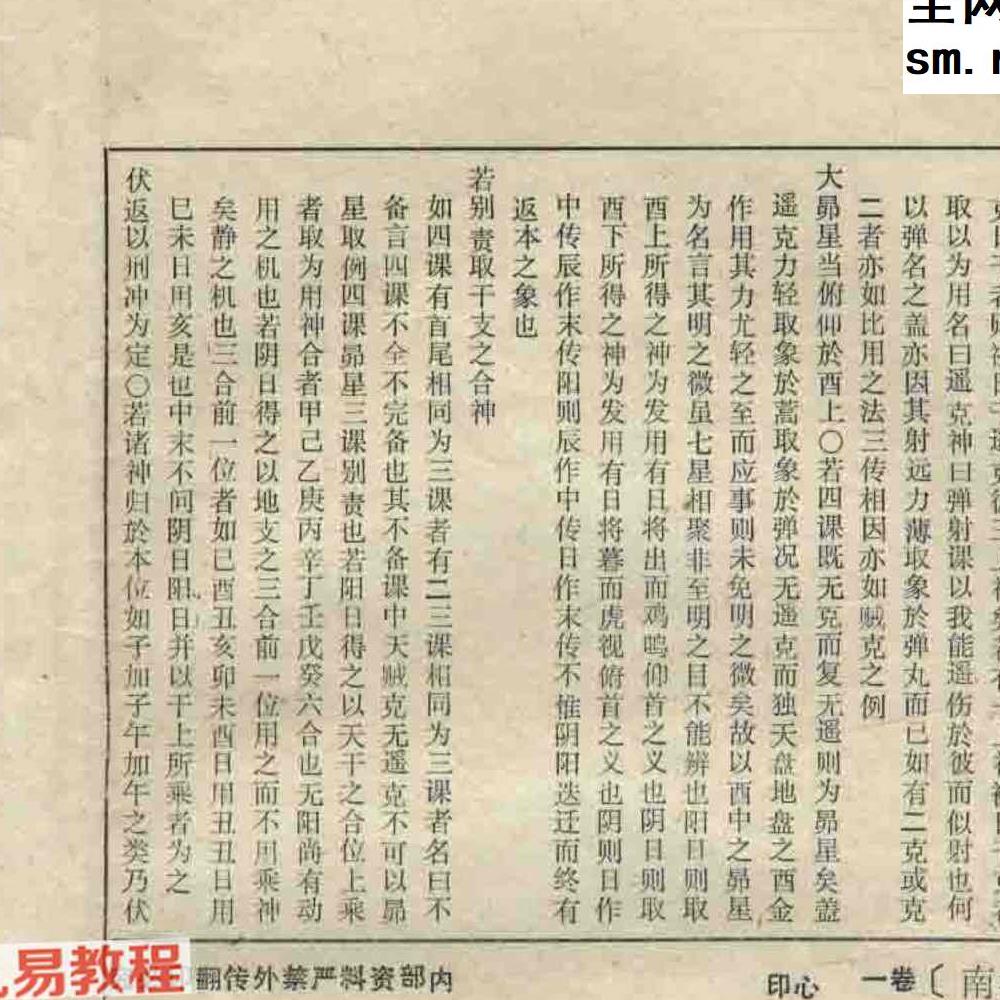 取以为用名曰遥克神曰弹射课以我能遥伤於彼而似射也何
以弹名之盖亦因其射远力薄取象於弹丸而已如有二克或克
二者亦如比用之法三传相因亦如贼克之例
大昴星当俯仰於酉上〇若四课既无克而复无遥则为昴星矣盖
遥克力轻取象於蒿取象於弹况无遥克而独天盘地盘之酉金
作用其力尤轻之至而应事则未免明之微矣故以酉中之昴星
为名言其明之微虽七星相聚非至明之目不能辨也阳日则取
酉上所得之神为发用有日将出而鸡鸣仰首之义也阴日则取
酉下所得之神为发用有日将暮而虎视俯首之义也阴则日作
中传辰作末传阳则辰作中传日作末传不惟阴阳迭迁而终有
返本之象也
若别责取干支之合神
如四课有首尾相同为三课者有二三课相同为三课者名曰不
备言四课不全不完备也其不备课中天贼克无遥克不可以昴
星取例四课昴星三课别责也若阳日得之以天干之合位上乘
者取为用神合者甲己乙庚丙辛丁壬戊癸六合也无阳尚有动
用之机也若阴日得之以地支之三合前一位用之而不用乘神
矣静之机也三合前一位者如巳酉丑亥卯未酉日用丑丑日用
巳未日用亥是也中末不问阴日阳日并以干上所乘者为之
伏返以刑冲为定〇若诸神归於本位如子加子午加午之类乃伏
全网
sm.
南
卷一
心印
内部资料严禁外传翻印
易教程